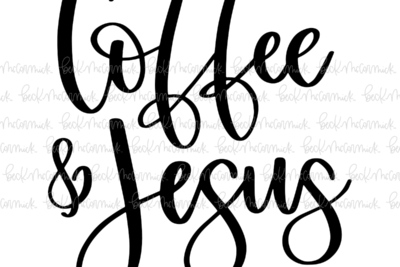 Coffee
& Jesus